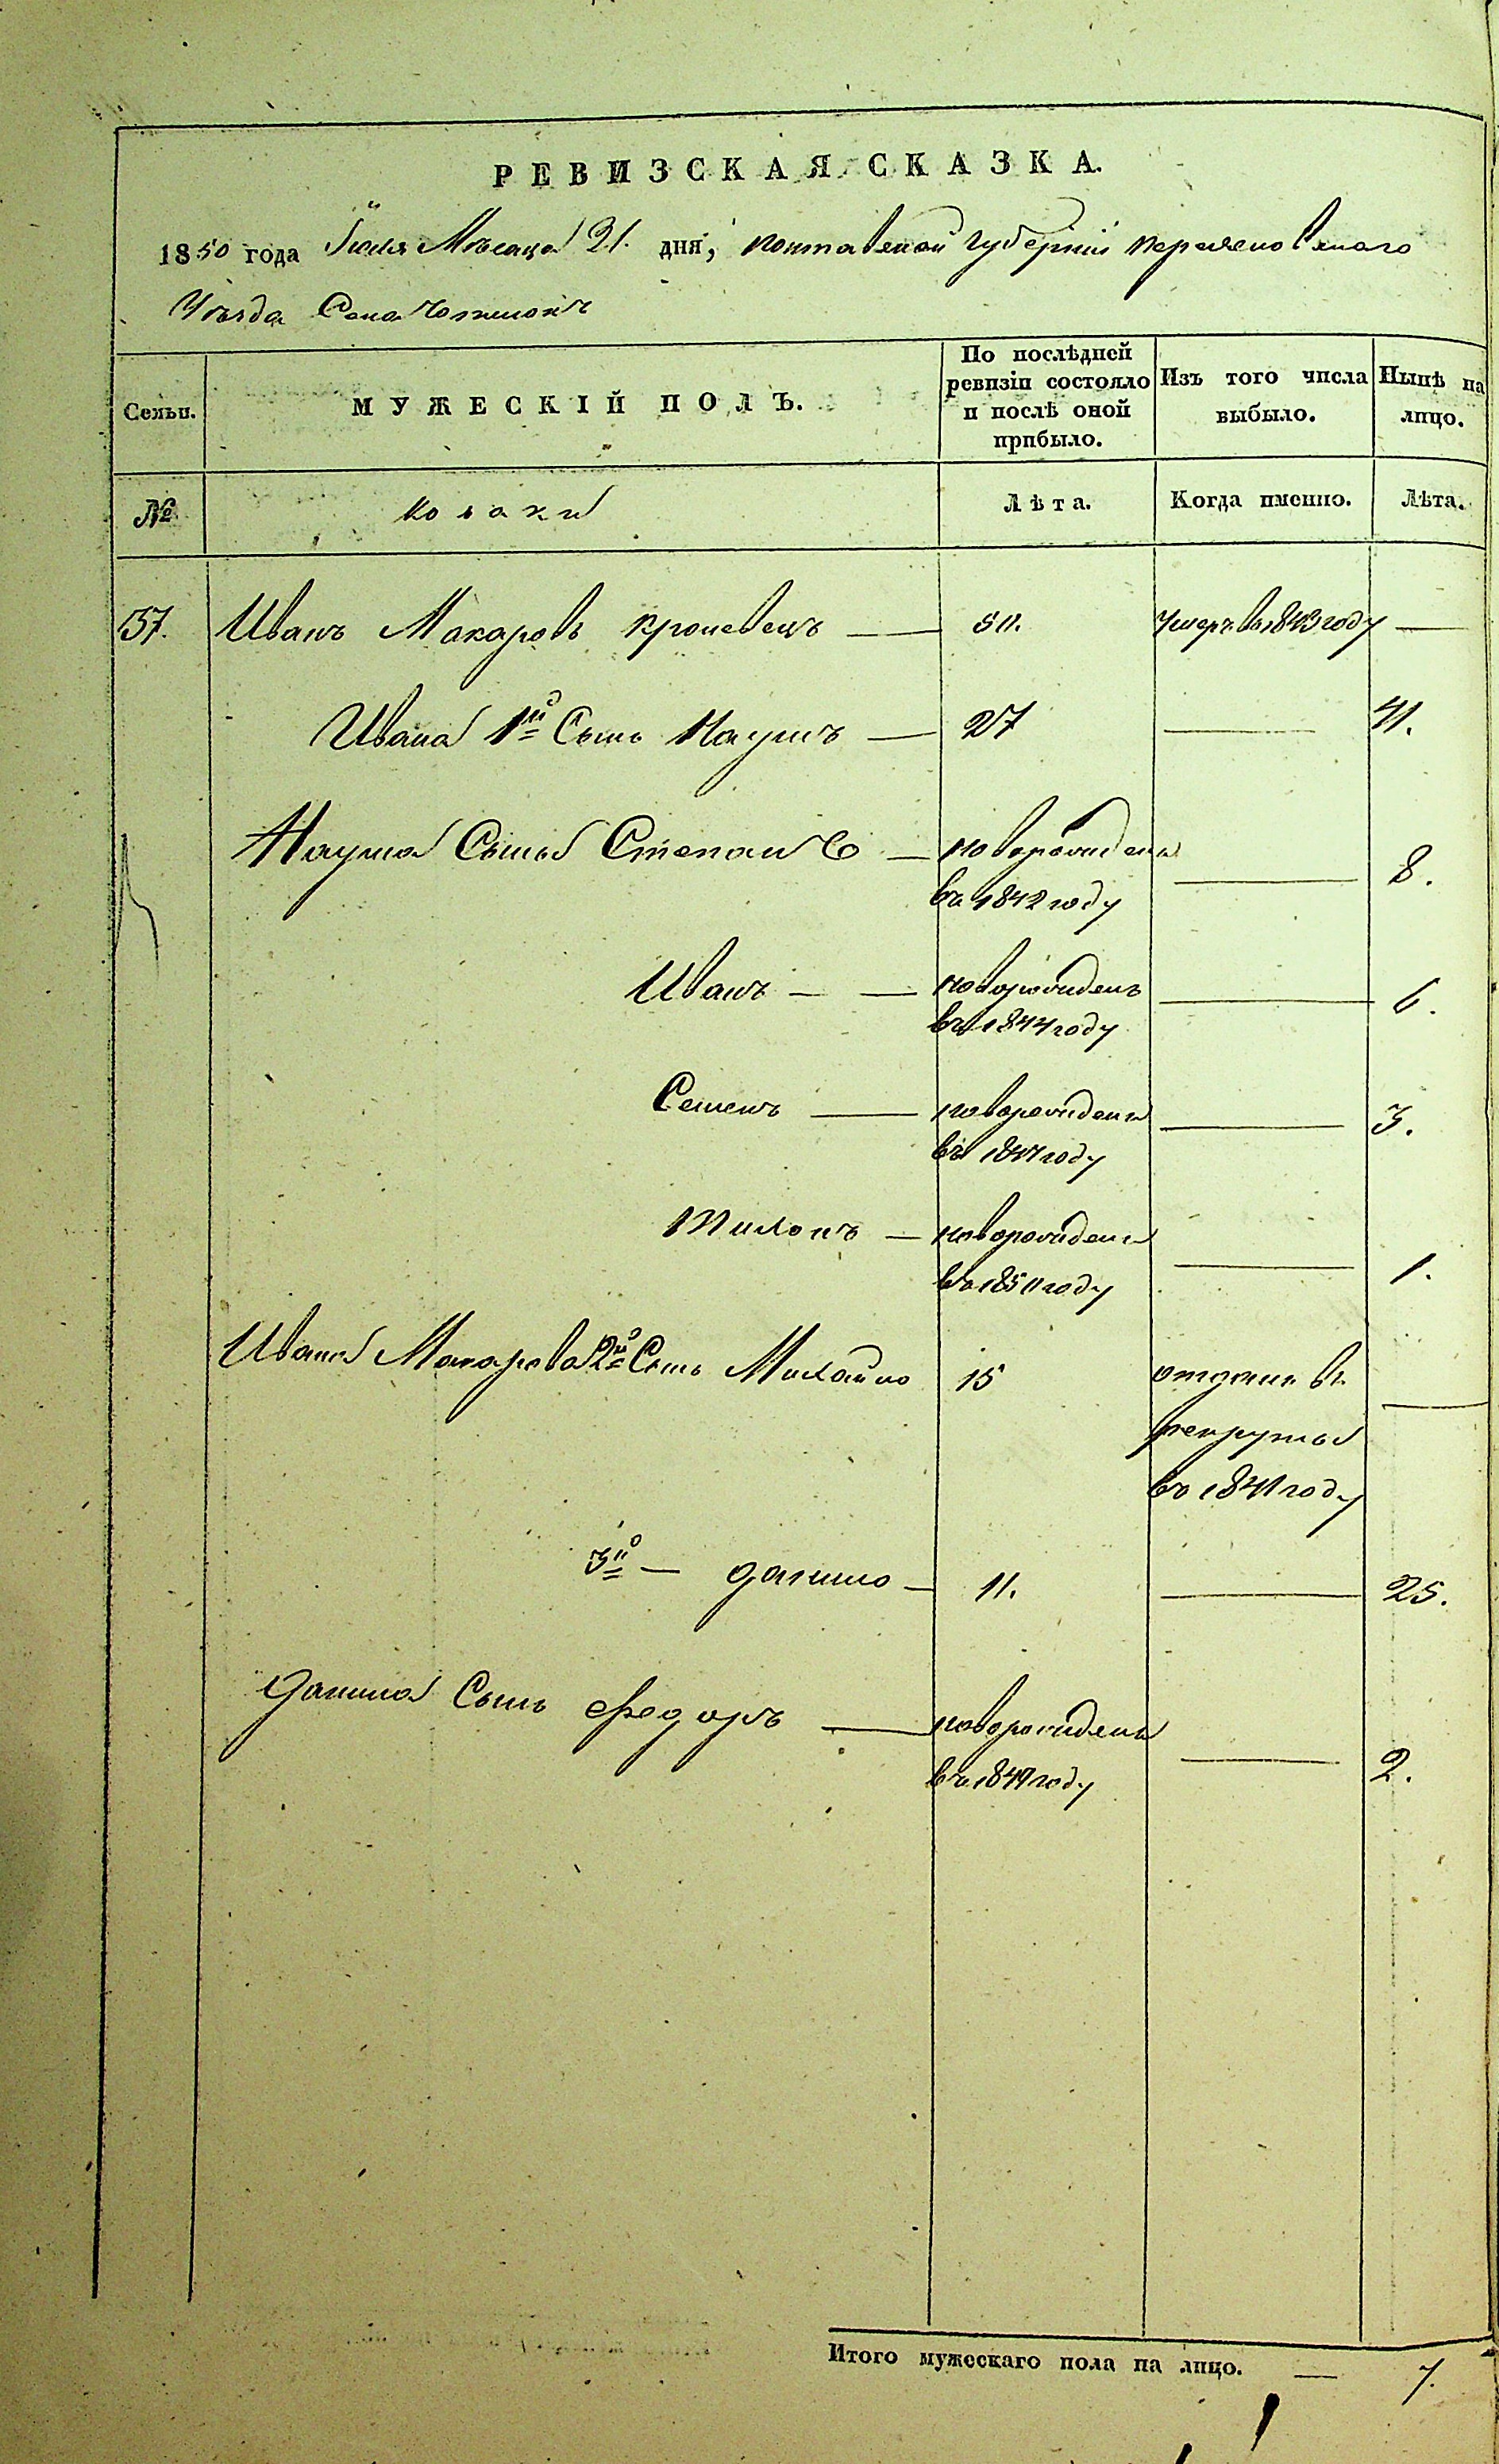 РЕВИЗСКАЯ СКАЗКА.
1850 года Іюля Мѣсяца 21. дня, полтавской губерніи переясловскаго
Уѣзда Села
Сельп.
МУЖЕСКІЙ ПОЛЪ.
По послѣдней ревизіи состояло и послѣ оной прибыло.
Изъ того числа выбыло.
Нынѣ на лицо.
№
козаки
Лѣта.
Когда именно.
Лѣта.
57. Иванъ Макаровъ кролевецъ — 50. умеръ въ 1843 году —
Ивана 1й Сынъ Наумъ — 27 — 41.
Наума Сыны Степанъ — новорожденъ — 8.
въ 1842 году
Иванъ — — новорожденъ — 6.
въ 1844 году
Семенъ — новорожденъ — 3.
въ 1847 году
Тихонъ — новорожденъ — 1.
въ 1850 году
Ивана Макарова 2й Сынъ Михайло 15 отданъ въ —
рекруты
въ 1841 году
3й — данило — 11. — 25.
Данила Сынъ Федоръ — новорожденъ — 2.
въ 1849 году
Итого мужескаго пола на лицо. — 7.